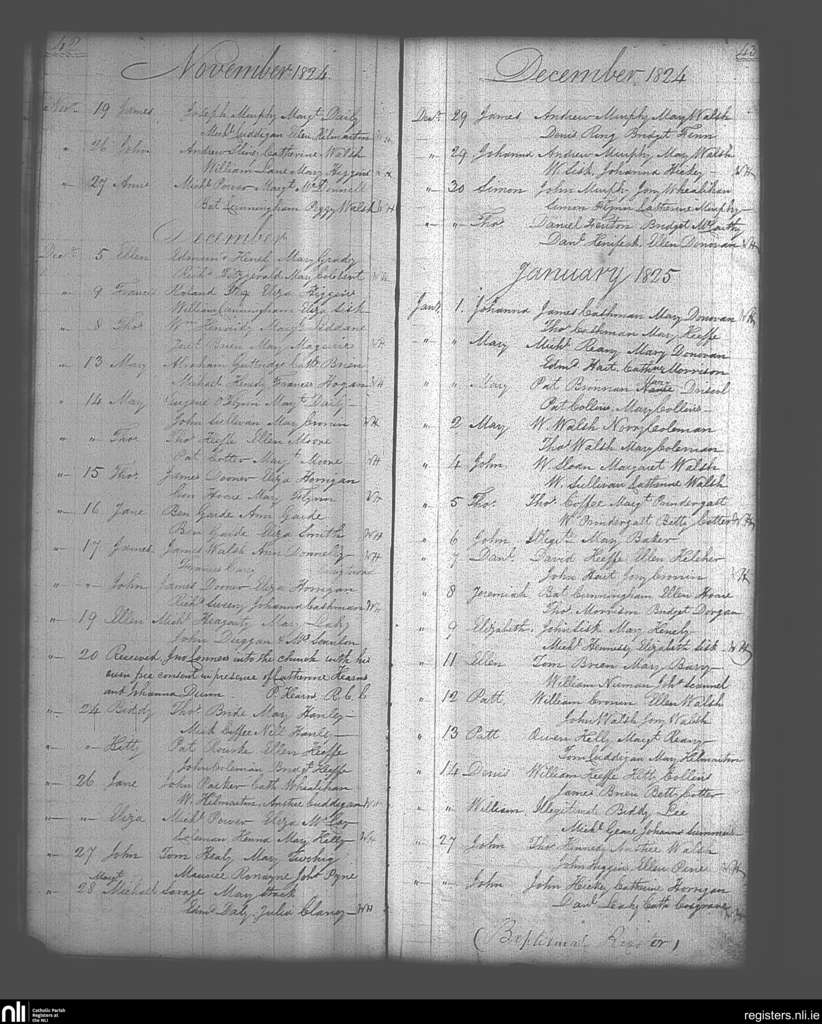 42
November 1824
Novr 19 James Joseph Murphy Margt Daily
Michl Cuddigan Ellen Kilmartin
" 26 John Andrew Catherine Walsh
William Lane Mary Higgins
" 27 Anne Michl Power Margt McDonnell
Bat Cunningham Peggy Walsh WH
December
Decr 5 Ellen Edmund Mary Grady
Richd Fitzgerald Mary
" 9 Francis Roland Eliza Higgins
William Cunningham Eliza Sisk
" 8 Thos Wm Margt
Brien Mary Maguire WH
" 13 Mary Abraham Guttridge Cath Brien
Michael Frances Hogan WH
" 14 Mary Eugene O Flynn Margt Daily
John Sullivan Mary Cronin WH
" " Thos Thos Keeffe Ellen Moore
Pat Cotter Margt Moore WH
" 15 Thos James Eliza Horrigan
Con Hoare Mary Flynn
" 16 Jane Ben Garde Ann Garde
Ben Garde Eliza Smith WH
" 17 James James Walsh Ann Donnelly WH
Frances
" " John James Eliza Horrigan
Richd Johanna Cashman WH
" 19 Ellen Michl Mary
John Duggan & Mrs Scanlon
" 20 Received Jno Connors into the church with his
own free consent in presence of Catherine Hearns
and Johanna P. Hearn R. C. C
" 24 Biddy Thos Bride Mary Hanley
Mich Coffee Nell Hanley
" " Kitty Pat Rourke Ellen Keeffe
John Coleman Bridgt Keeffe
" 26 Jane John Parker Cath Whealihan
W. Kilmartin, Anstice Cuddigan WH
" " Eliza Michl Power Eliza
Coleman Mary Kelly WH
" 27 John Tom Healy Mary
Maurice Ronayne Joh Pyne
" 28 Michael Savage Mary
Edmd Daly Julia Clancy WH
43
December 1824
Decr 29 James Andrew Murphy Mary Walsh
Denis Ring Bridget Finn
" 29 Johanna Andrew Murphy Mary Walsh
W. Sisk, Johanna Hickey WH
" 30 Simon John Murphy Jony Whealihan
Simon Flynn Catherine Murphy
" " Thos Daniel Fenton Bridget McCarthy
Danl Ellen Donovan WH
January 1825
Jany 1. Johanna James Cashman Mary Donovan WH
Thos Cashman Mary Keeffe
" " Mary Michl Reary Mary Donovan
Edmd Hart Cathne Morrison
" " Mary Pat Brennan Nance Driscol
Pat Collins, Mary Collins
" 2 Mary W. Walsh Norry Coleman
Thos Walsh Mary Coleman
" 4 John W Sloan Margaret Walsh
W. Sullivan Catherine Walsh
" 5 Thos Thos Coffee Margt Prindergast
Wm Prindergast Betty Cotter WH
" 6 John Illegte Mary Baker
" 7 Danl David Keeffe Ellen Kelcher
John Hart Jony Cronin WH
" 8 Jeremiah Bat Cunningham Ellen Hoare
Thos Morrison Bridget Dorgan
" 9 Elizabeth John Sisk Mary Henely
Michl Hennessy Elizabeth Sisk WH
" 11 Ellen Tom Brien Mary Barry
William Joh
" 12 Patt William Cronin Ellen Walsh
John Walsh Jony Walsh
" 13 Patt Owen Kelly Margt Reary
Tom Cuddigan Mary Kilmartin
" 14 Denis William Keeffe Kitty Collins
James Brien Betty Cotter
" " William, Illegitimate Biddy Lee
Michl Geare, Johanna
" 27 John Thos Kennedy Anstice Walsh
John Higgins Ellen WH
" " John John Hickey Catherine Horrigan
Danl Leahy Cath Cosgrave WH
(Baptismal Register)
nli
Catholic Parish
Registers at
the NLI
registers.nli.ie